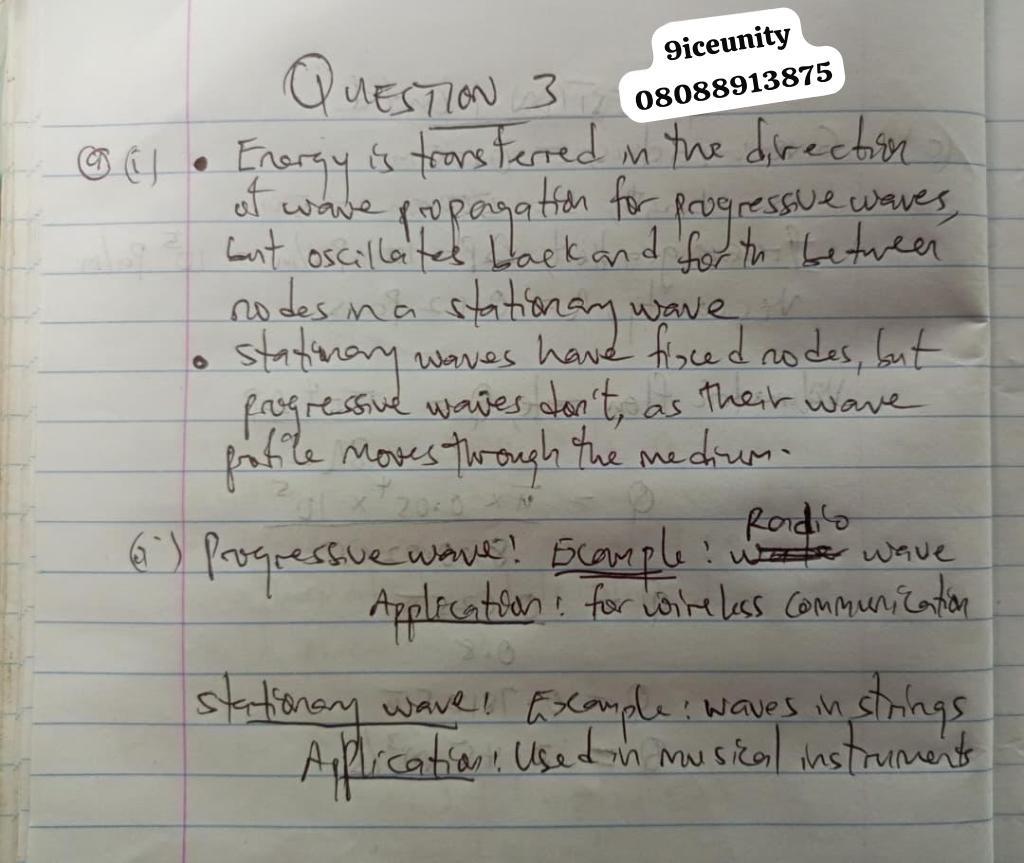 9iceunity
08088913875
QUESTION 3
(a) (i) • Energy is transferred in the direction
of wave propagation for progressive waves,
but oscillates back and forth between
nodes in a stationary wave
• Stationary waves have fixed nodes, but
progressive waves don't, as their wave
profile moves through the medium.
(ii) Progressive wave: Example: Radio wave
Application: for wireless communication
Stationary wave: Example: waves in strings
Application: Used in musical instruments